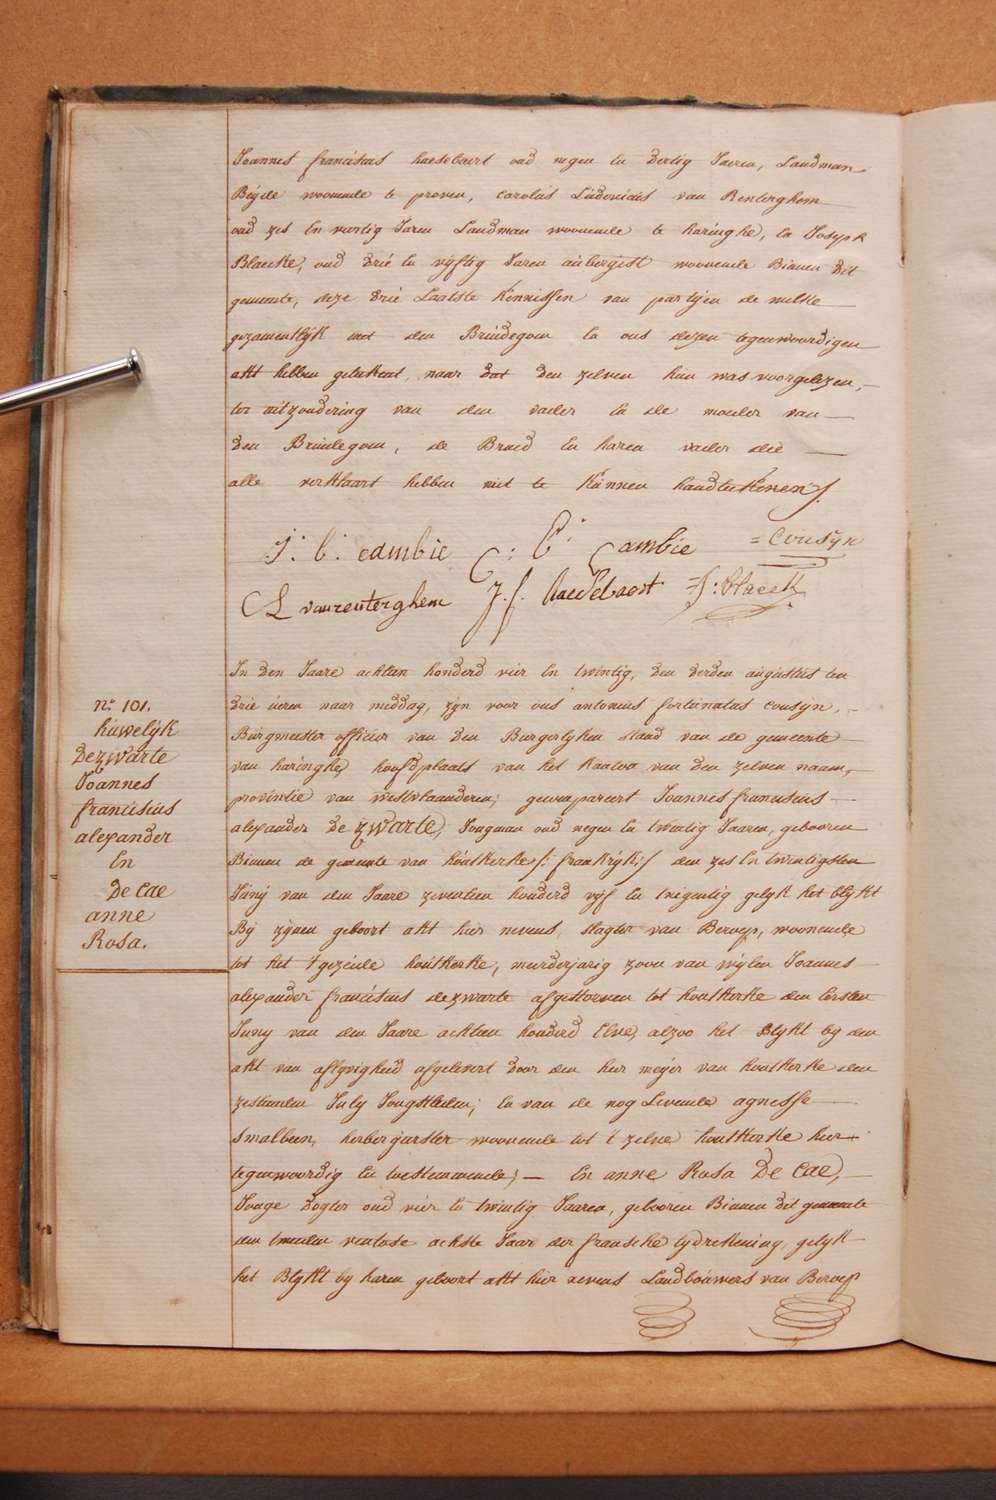 Joannes franciscus haesebaert oud negen en dertig Jaeren, Landman
Beijde woonende te proven, carolus Ludovicus van Renterghem
oud zes En veertig Jaren Landman woonende te haringhe, en Joseph
Blaecke, oud drie en vijftig Jaren aubergist woonende Binnen dit
gemeente, deze drie Laatste Kennissen van partijen de welke
gezamentlijk met den Bruidegom en ons dezen tegenwoordigen
akt hebben geteekent, naar dat den zelven hun was voorgelezen,
ter uitzondering van den vader en de moeder van
den Bruidegom, de Bruid en haren vader die
alle verklaart hebben niet te Kunnen handteekenen /.
J: b: cambie C: b: Cambie = Cousÿn
CL vanrenterghem J. f. haesebaert J: blaeck
In den Jaare achtien honderd vier En twintig, den derden augustus ten
drie uren naar middag, zyn voor ons antonius fortunatus cousyn,
Burgmeester officier van den Burgerlyken stand van de gemeente
van haringhe, hoofdplaats van het Kanton van den zelven naam,
provintie van westvlaanderen; gecompareert Joannes franciscus
alexander De zwarte, Jongman oud negen en twintig Jaaren, gebooren
Binnen de gemeente van houtkerke /: frankrÿk:/ den zes En twintigsten
Junÿ van den Jaare zeventien honderd vÿf en negentig gelyk het blykt
By zÿnen geboort akt hier nevens, slagter van Beroep, woonende
tot het 't gezeide houtkerke, meerderjarig zoon van wÿlen Joannes
alexander franciscus dezwarte afgestorven tot houtkerke den Eersten
Juny van den Jaare achtien honderd Elve, alzoo het Blykt by den
akt van aflyvigheid afgelevert door den heer meÿer van houtkerke den
zestienden July Jongstleden; en van de nog Levende agnesse
Smalbeen, herbergierster woonende tot 't zelve houtkerke hier
tegenwoordig en toestemmende; — En anne Rosa De Cae,
Jonge dogter oud vier en twintig Jaaren, gebooren Binnen dit gemeente
den tweeden ventose achste Jaar der fransche tydrekening, gelyk
het Blykt by haren geboort akt hier nevens Landbouwers van Beroep
n.º 101.
huwelÿk
Dezwarte
Joannes
franciscus
alexander
En
De Cae
anne
Rosa.